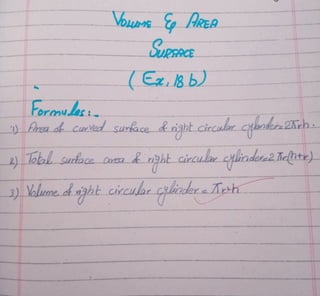 VOLUME & AREA
SURFACE
(Ex, 18 b)
Formulas:-
1) Area of curved surface of right circular cylinder=2πrh.
2) Total surface area of right circular cylinder=2πr(h+r)
3) Volume of right circular cylinder = πr²h